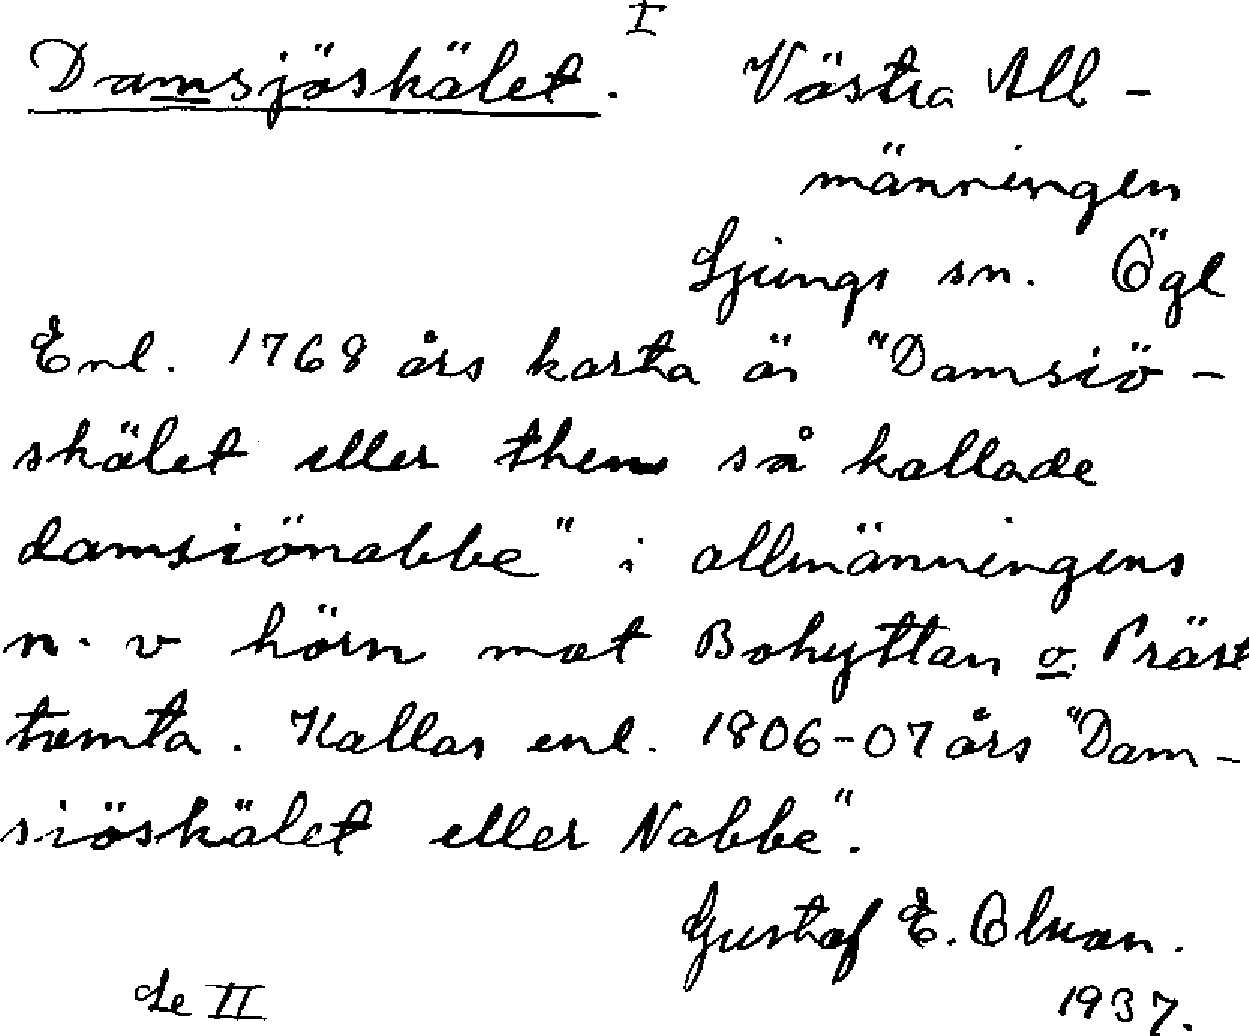 I
Damsjöskälet. Västra All-
männingen
Ljungs sn. Ögl
Enl. 1768 års karta är "Damsiö-
skälet eller them så kallade
damsiönabbe" i allmänningens
n. v hörn mot Bohyttan o. Präst
tomta. Kallas enl. 1806-07 års "Dam-
siöskälet eller Nabbe".
Gustaf E. Olson.
se II 1937.